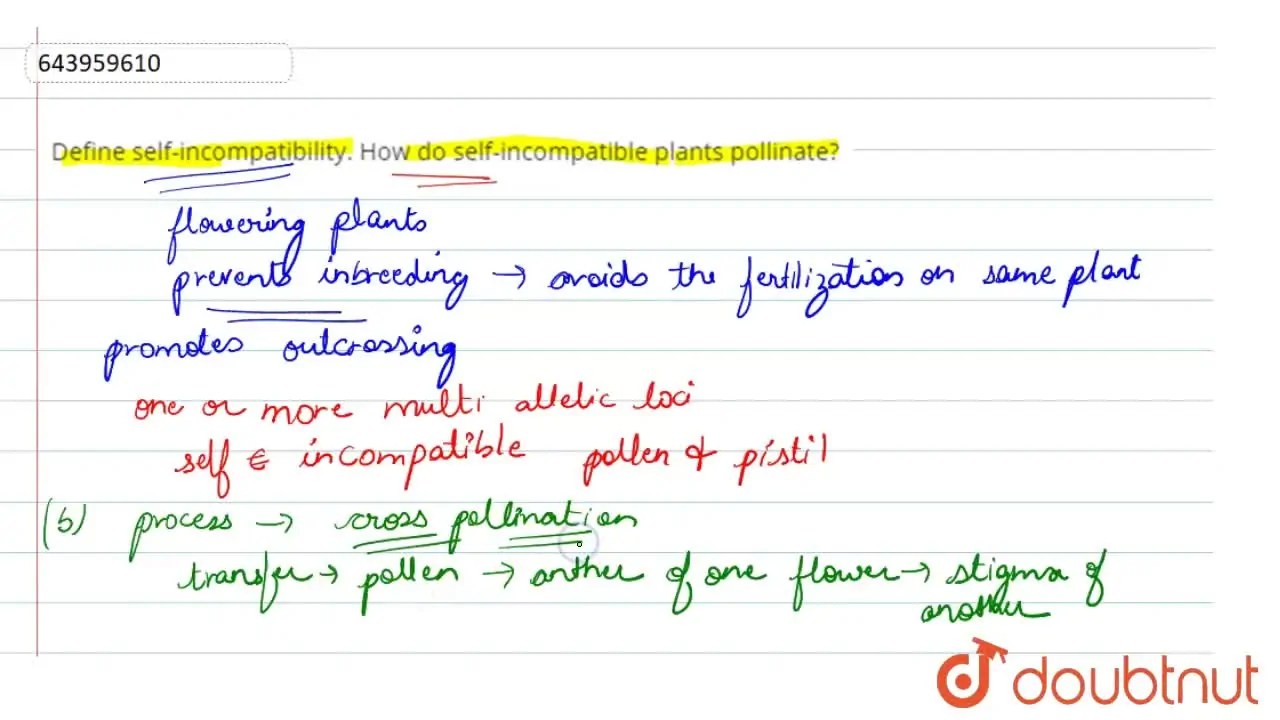 643959610
Define self-incompatibility. How do self-incompatible plants pollinate?
flowering plants
prevents inbreeding → avoids the fertilization on same plant
promotes outcrossing
one or more multi allelic loci
self & incompatible pollen & pistil
(b) process → cross pollination
transfer → pollen → anther of one flower → stigma of
another
doubtnut